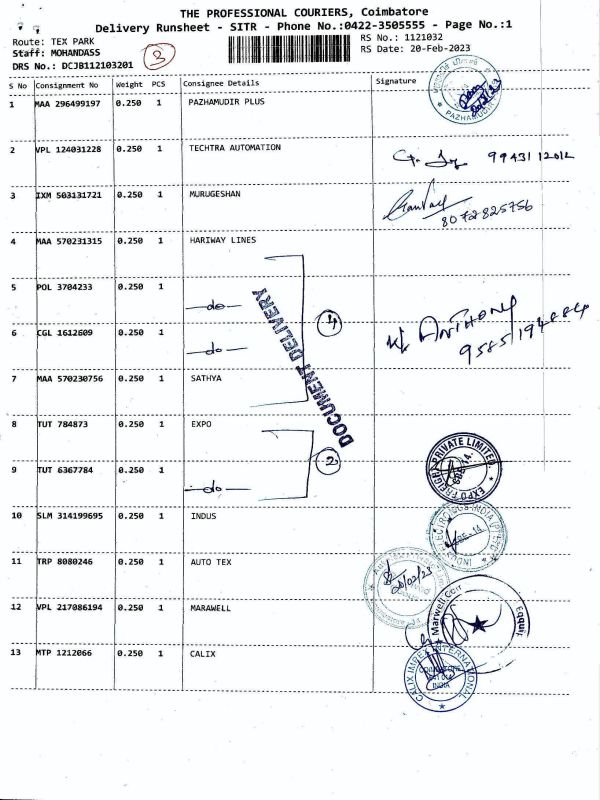 THE PROFESSIONAL COURIERS, Coimbatore
Delivery Runsheet - SITR - Phone No.:0422-3505555 - Page No.:1
Route: TEX PARK
Staff: MOHANDASS
DRS No.: DCJB112103201
3
RS No.: 1121032
RS Date: 20-Feb-2023
S No Consignment No Weight PCS Consignee Details Signature
1 MAA 296499197 0.250 1 PAZHAMUDIR PLUS
2 VPL 124031228 0.250 1 TECHTRA AUTOMATION
3 IXM 503131721 0.250 1 MURUGESHAN 8072825756
4 MAA 570231315 0.250 1 HARIWAY LINES
5 POL 3704233 0.250 1 -do-
6 CGL 1612609 0.250 1 -do-
4
ANTHONY
7 MAA 570230756 0.250 1 SATHYA
DOCUMENT DELIVERY
8 TUT 784873 0.250 1 EXPO
9 TUT 6367784 0.250 1 -do-
2
EXPO FREIGHT PRIVATE LIMITED
10 SLM 314199695 0.250 1 INDUS
11 TRP 8080246 0.250 1 AUTO TEX
20/02/23
12 VPL 217086194 0.250 1 MARAWELL
Marwell
13 MTP 1212066 0.250 1 CALIX
CALIX IMPEX INTERNATIONAL
INDIA